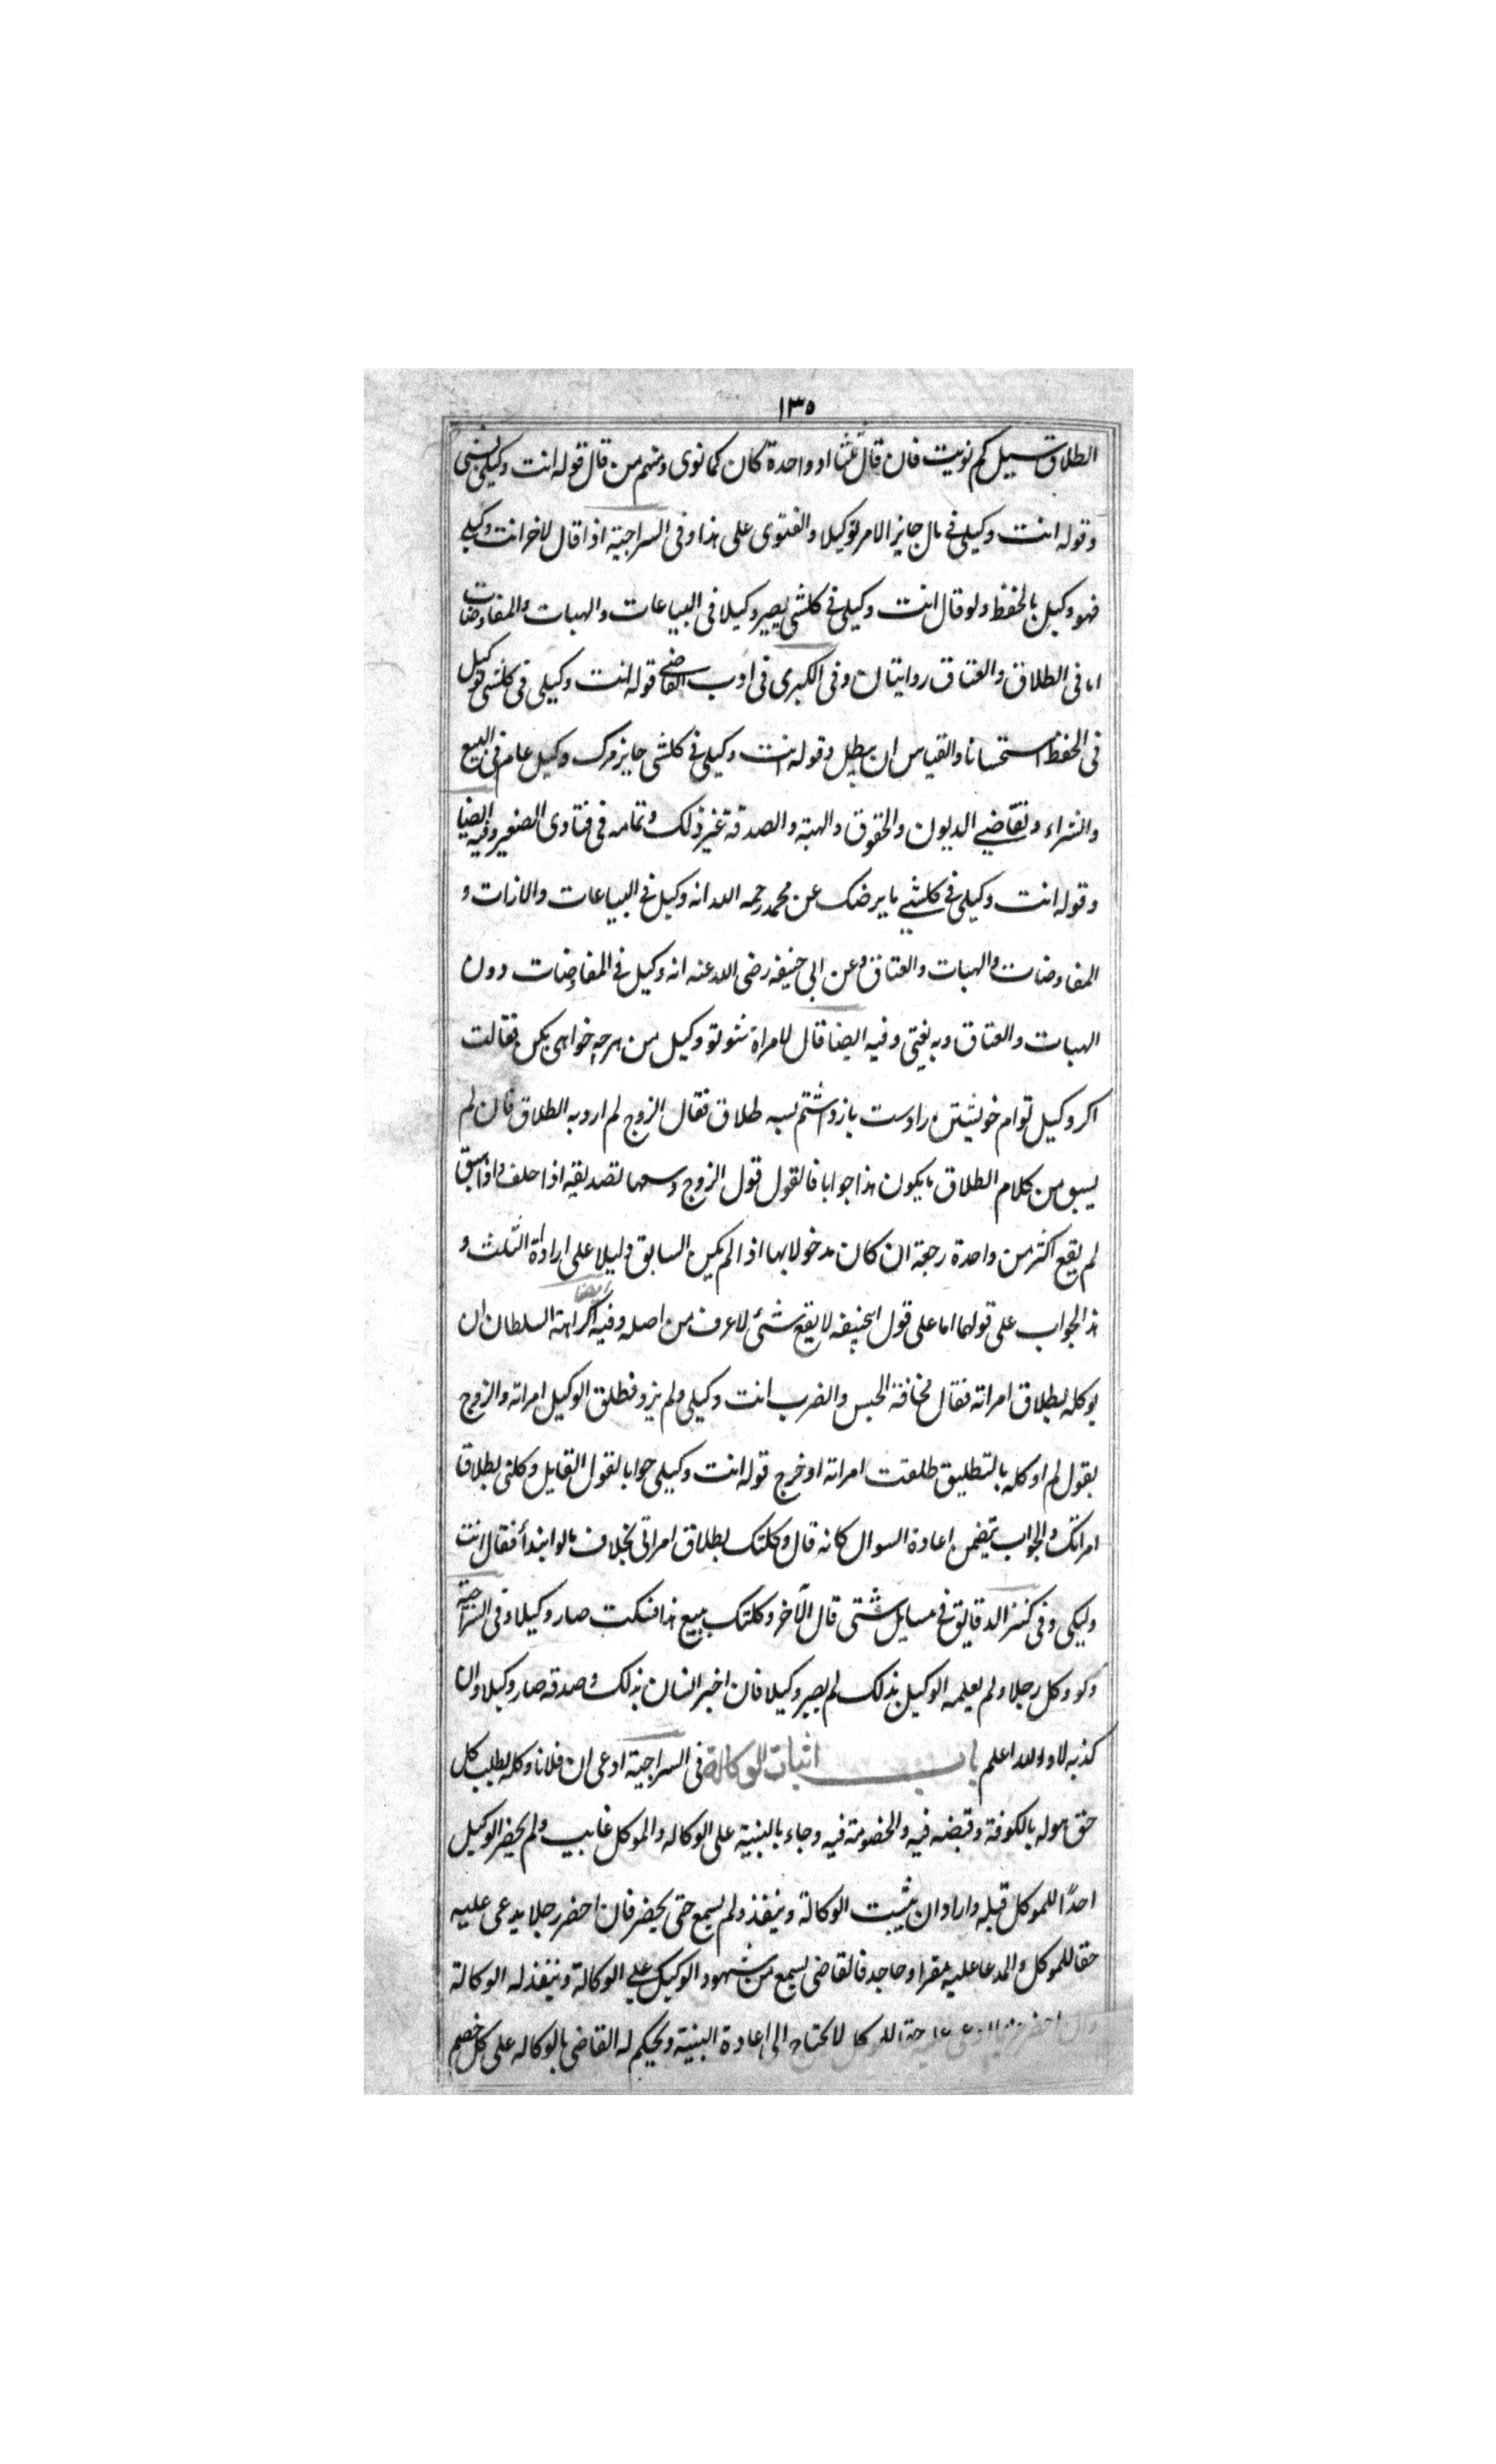 ١٣٥
الطلاق سيل كم نويت فان قال ثلثا او واحدة كان كما نوى ومنهم من قال قوله انت وكيلى بشى
وقوله انت وكيلى فى مال جايز الامر توكيلا والفتوى على هذا وفى السراجية اذا قال لاخر انت وكيلى
فهو وكيل بالحفظ ولو قال انت وكيلى فى كلشى يصير وكيلا فى البياعات والهبات والمفاوضات
اما فى الطلاق والعتاق روايتان وفى الكبرى فى ادب القاضى قوله انت وكيلى فى كلشى توكيل
فى الحفظ استحسانا والقياس ان يبطل وقوله انت وكيلى فى كلشى جايز مرك وكيل عام فى البيع
والشراء وتقاضى الديون والحقوق والهبة والصدقة غير ذلك وتمامه فى فتاوى الصغير وفيه ايضا
وقوله انت وكيلى فى كلشى ما يرضك عن محمد رحمه الله انه وكيل فى البياعات والازات و
المفاوضات والهبات والعتاق وعن ابى حنيفه رضى الله عنه انه وكيل فى المفاوضات دون
الهبات والعتاق وبه يفتى وفيه ايضا قال لامراة شو تو وكيل من هرچه خواهى بكن فقالت
اكر وكيل توام خويشتن را دست باز داشتم بسه طلاق فقال الزوج لم ارد به الطلاق فان لم
يسبق من كلام الطلاق ما يكون هذا جوابا فالقول قول الزوج وسعها تصديقه اذا حلف واذا سبق
لم يقع اكثر من واحدة رجعة ان كان مدخولا بها اذا لم يكن السابق دليلا على ارادة الثلث و
هذا الجواب على قولهما اما على قول ابحنيفه لا يقع شئ لاعرف من اصله وفيه ايضا اكراهة السلطان ان
يوكله بطلاق امراته فقال مخافة الحبس والضرب انت وكيلى ولم يزد فطلق الوكيل امراته والزوج
يقول لم اوكله بالتطليق طلقت امراته اذ خرج قوله انت وكيلى جوابا لقول القايل وكلنى بطلاق
امراتك والجواب يتضمن اعادة السوال كانه قال وكلتك بطلاق امراتى بخلاف مالو ابتدأ فقال انت
وليكى وفى كنز الدقايق فى مسايل شتى قال لآخر وكلتك ببيع هذا فسكت صار وكيلا وفى السراجية
ولو وكل رجلا ولم يعلمه الوكيل بذلك لم يصير وكيلا فان اخبر انسان بذلك وصدقه صار وكيلا وان
كذبه لا والله اعلم باب اثبات الوكالة فى السراجية ادعى ان فلانا وكله بطلب كل
حق هو له بالكوفة وقبضه فيه والخصومة فيه وجاء بالبينة على الوكاله والموكل غايب ولم يحضر الوكيل
احدًا للموكل قبله واراد ان يثبت الوكالة وينفذ ولم يسمع حتى يحضر فان احضر رجلا يدعى عليه
حقا للموكل والمدعا عليه مقرا وجاحد فالقاضى يسمع من شهود الوكيل على الوكالة وينفذ له الوكالة
وان احضر للموكل لا يحتاج الى اعادة البينة ويحكم له القاضى بالوكاله على كل خصم